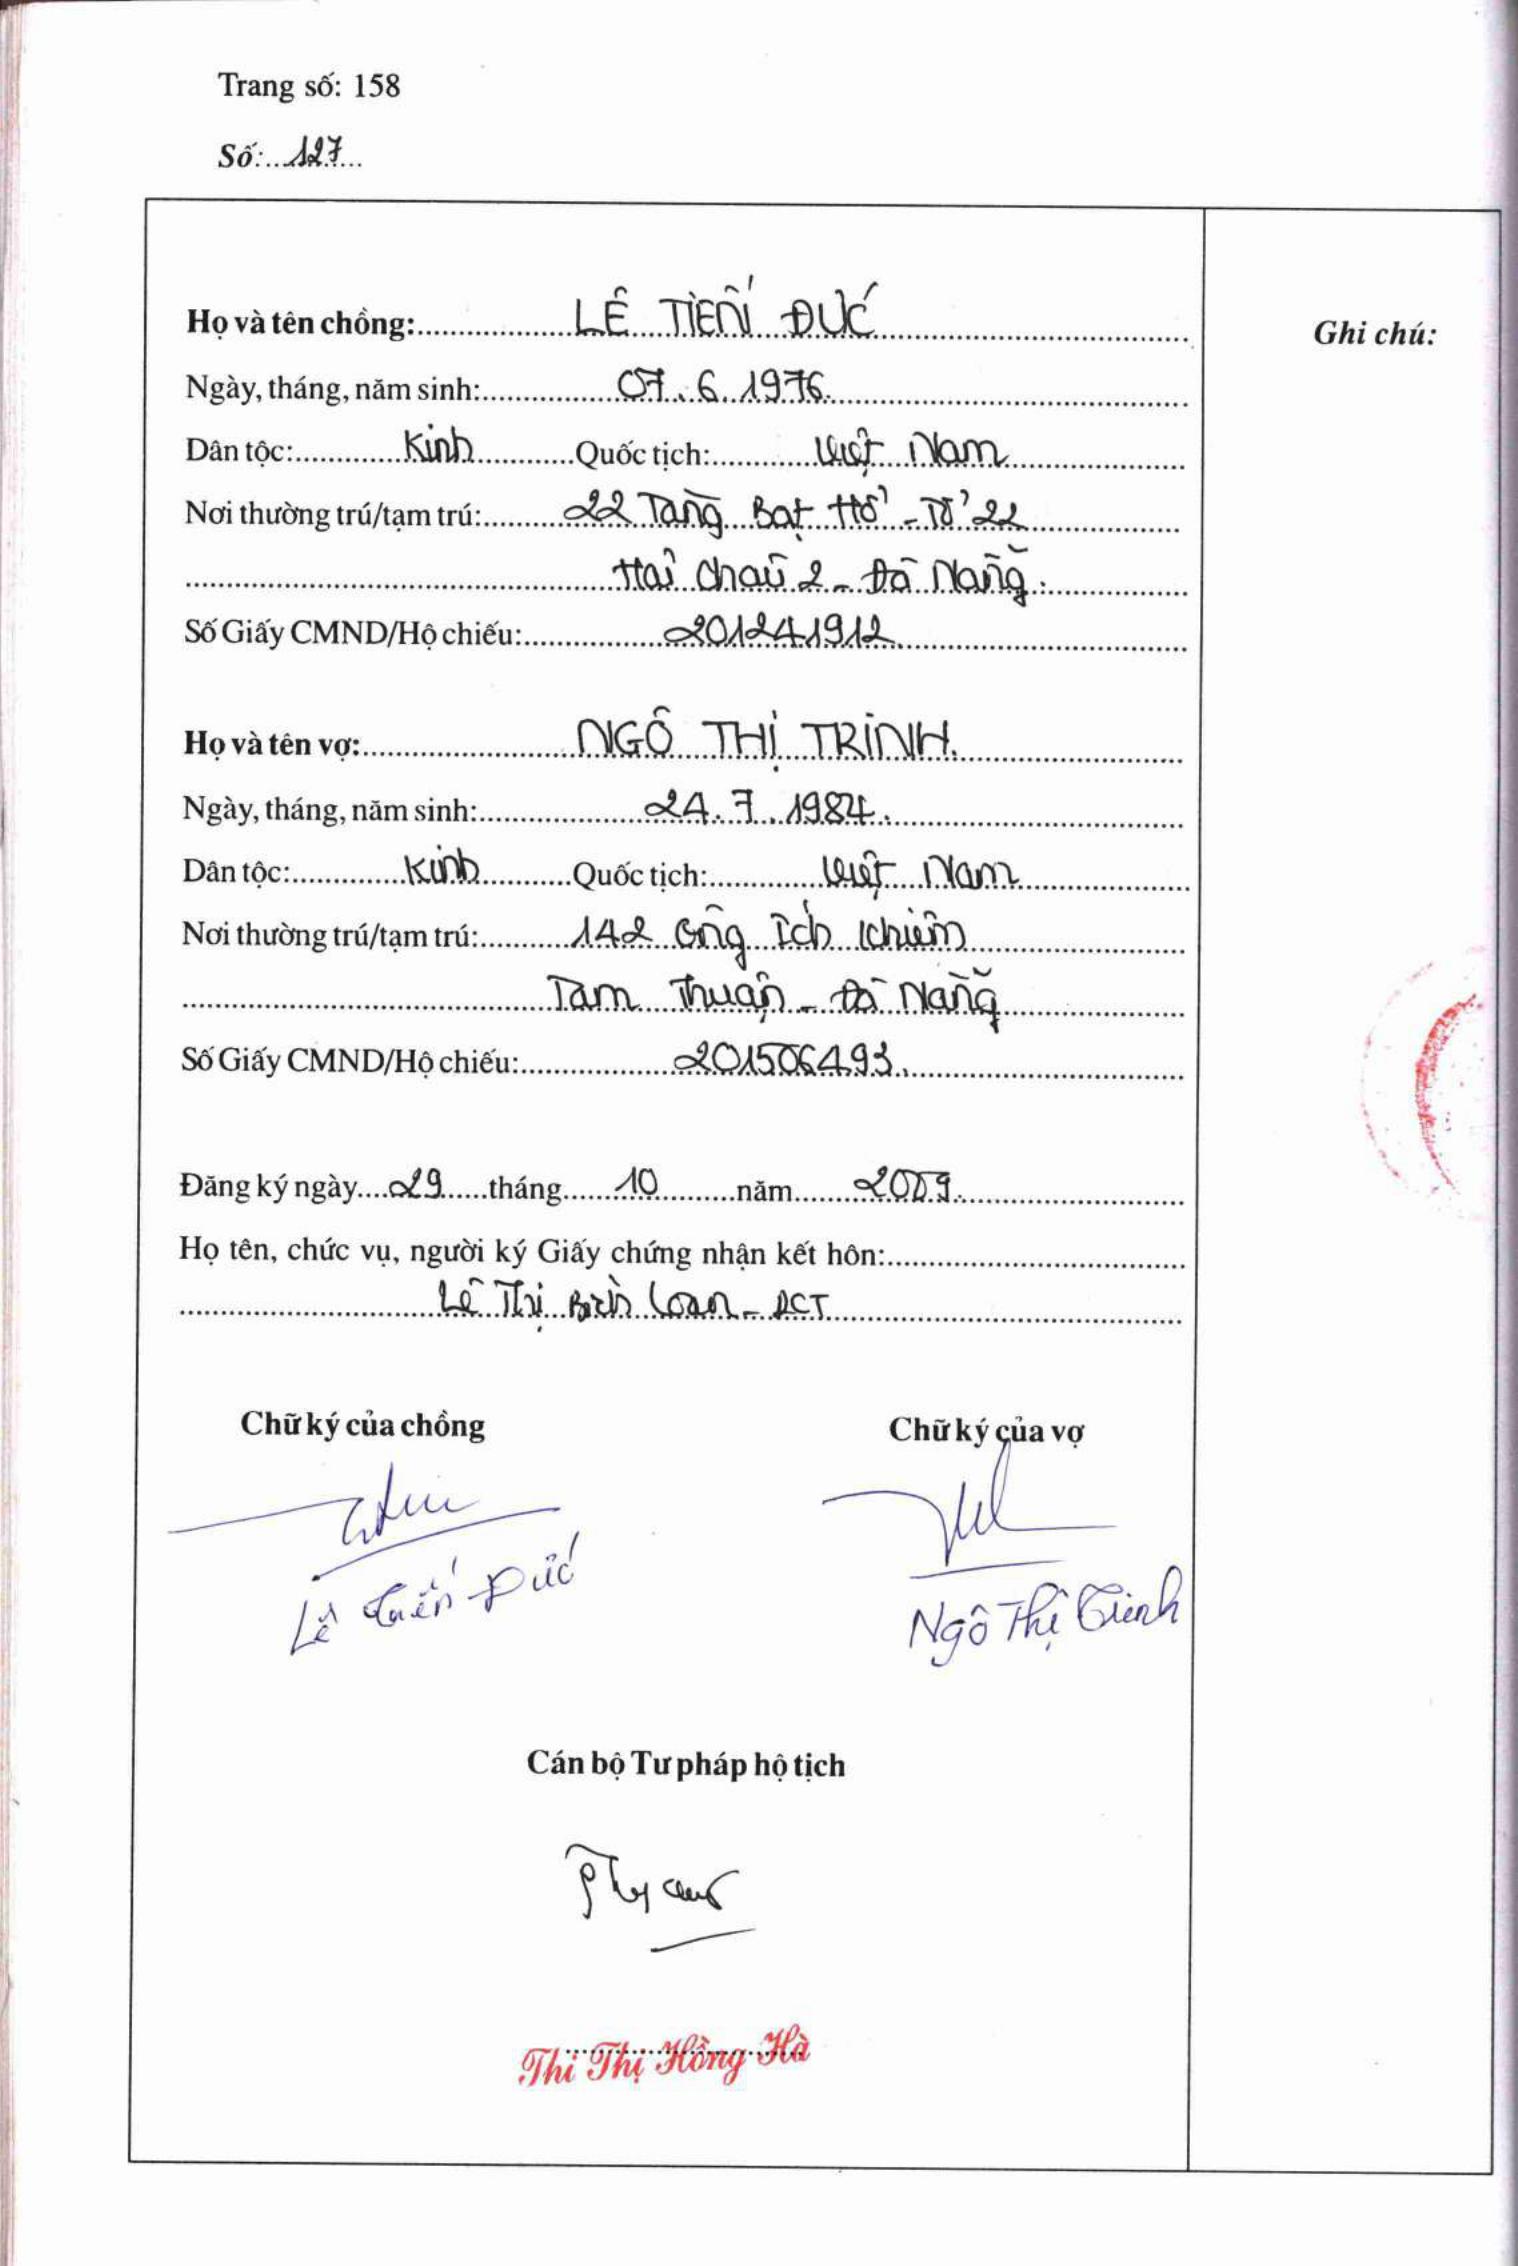 Trang số: 158
Số: 127
Họ và tên chồng: LÊ TIẾN ĐỨC
Ghi chú:
Ngày, tháng, năm sinh: 07.6.1976.
Dân tộc: Kinh Quốc tịch: Việt Nam
Nơi thường trú/tạm trú: 22 Tăng Bạt Hổ - Tổ 22
Hải Châu 2 - Đà Nẵng.
Số Giấy CMND/Hộ chiếu: 201241912
Họ và tên vợ: NGÔ THỊ TRINH.
Ngày, tháng, năm sinh: 24.7.1984.
Dân tộc: Kinh Quốc tịch: Việt Nam
Nơi thường trú/tạm trú: 142 Ông Ích Khiêm
Tam Thuận - Đà Nẵng
Số Giấy CMND/Hộ chiếu: 201506493.
Đăng ký ngày 29 tháng 10 năm 2009.
Họ tên, chức vụ, người ký Giấy chứng nhận kết hôn:
Lê Thị Bích Loan - PCT
Chữ ký của chồng Chữ ký của vợ
Lê Tiến Đức Ngô Thị Trinh
Cán bộ Tư pháp hộ tịch
Thi Thị Hồng Hà